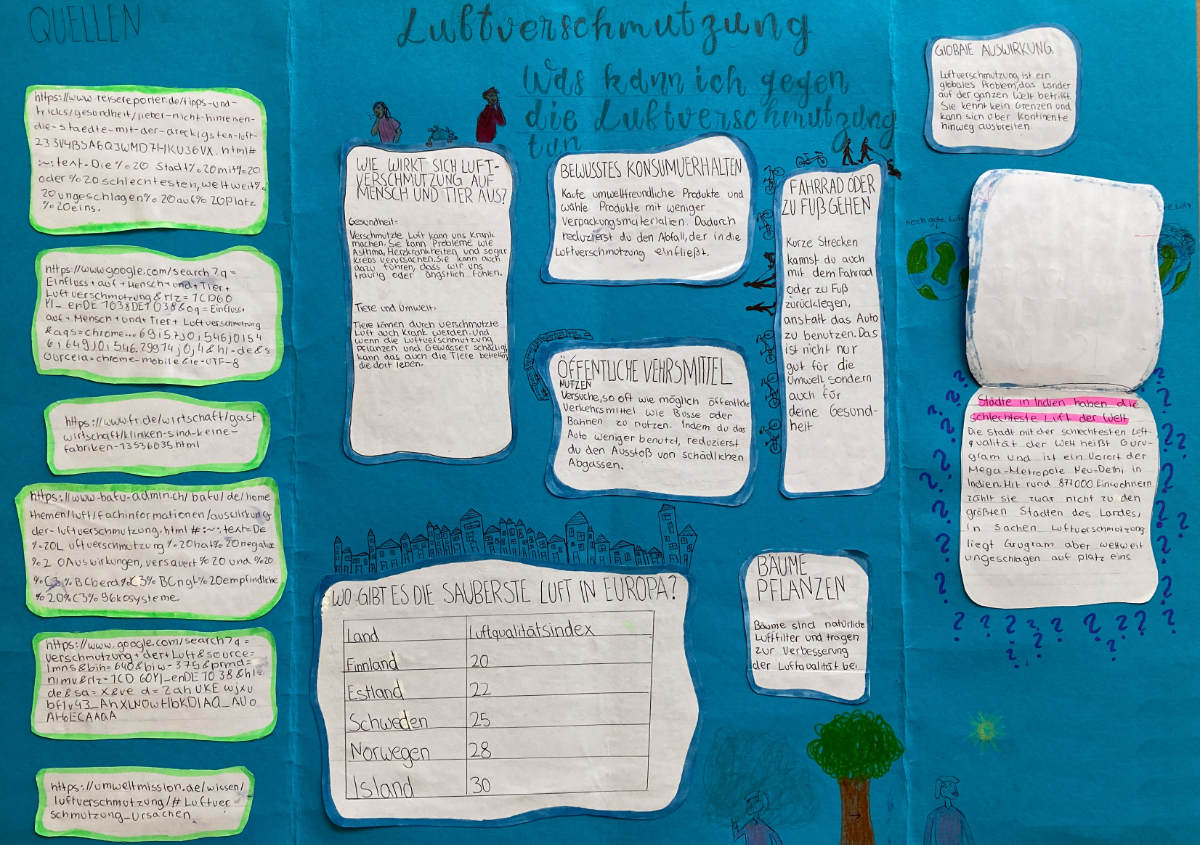 QUELLEN
https://www.reisereporter.de/tipps-und-
tricks/gesundheit/lieber-nicht-hinreisen-
die-staedte-mit-der-dreckigsten-luft-
%20eins.
https://www.google.com/search?q=
Einfluss+auf+Mensch+und+Tier+
auf+Mensch+und+Tier+Luftverschmutzung
https://www.fr.de/wirtschaft/gast
wirtschaft/kliniken-sind-keine-
fabriken-13536035.html
themen/luft/fachinformationen/auswirkung
der-luftverschmutzung.html#:~:text=De
https://www.google.com/search?q=
verschmutzung+der+Luft&source=
https://umweltmission.de/wissen/
luftverschmutzung/#Luftver
schmutzung_Ursachen
Luftverschmutzung
Was kann ich gegen
die Luftverschmutzung
tun
WIE WIRKT SICH LUFT-
VERSCHMUTZUNG AUF
MENSCH UND TIER AUS?
Gesundheit:
Verschmutzte Luft kann uns krank
machen. Sie kann Probleme wie
Asthma, Herzkrankheiten und sogar
Krebs verursachen. Sie kann auch
dazu führen, dass wir uns
traurig oder ängstlich fühlen.
Tiere und Umwelt:
Tiere können durch verschmutzte
Luft auch krank werden. Und
wenn die Luftverschmutzung
Pflanzen und Gewässer schädigt,
kann das auch die Tiere
die dort leben.
BEWUSSTES KONSUMVERHALTEN
Kaufe umweltfreundliche Produkte und
wähle Produkte mit weniger
Verpackungsmaterialien. Dadurch
reduzierst du den Abfall, der in die
Luftverschmutzung einfließt.
ÖFFENTLICHE VEHRSMITTEL
NUTZEN
Versuche, so oft wie möglich öffentliche
Verkehrsmittel wie Busse oder
Bahnen zu nutzen. Indem du das
Auto weniger benutzt, reduzierst
du den Ausstoß von schädlichen
Abgassen.
FAHRRAD ODER
ZU FUß GEHEN
Kurze Strecken
kannst du auch
mit dem Fahrrad
oder zu Fuß
zurücklegen,
anstalt das Auto
zu benutzen. Das
ist nicht nur
gut für die
Umwelt sondern
auch für
deine Gesund-
heit
WO GIBT ES DIE SAUBERSTE LUFT IN EUROPA?
Land Luftqualitätsindex
Finnland 20
Estland 22
Schweden 25
Norwegen 28
Island 30
BÄUME
PFLANZEN
Bäume sind natürliche
Luftfilter und tragen
zur Verbesserung
der Luftqualität bei
GLOBALE AUSWIRKUNG
Luftverschmutzung ist ein
globales Problem, das Länder
auf der ganzen Welt betrifft.
Sie kennt kein Grenzen und
kann sich über Kontinente
hinweg ausbreiten.
noch gute Luft
Städte in Indien haben die
schlechteste Luft der Welt
Die Stadt mit der schlechtesten Luft-
qualität der Welt heißt Guru-
gram und ist ein Vorort der
Mega-Metropole Neu-Delhi in
Indien. Mit rund 877000 Einwohnern
zählt sie zwar nicht zu den
größten Städten des Landes,
in Sachen Luftverschmutzung
liegt Gurugram aber weltweit
ungeschlagen auf platz eins